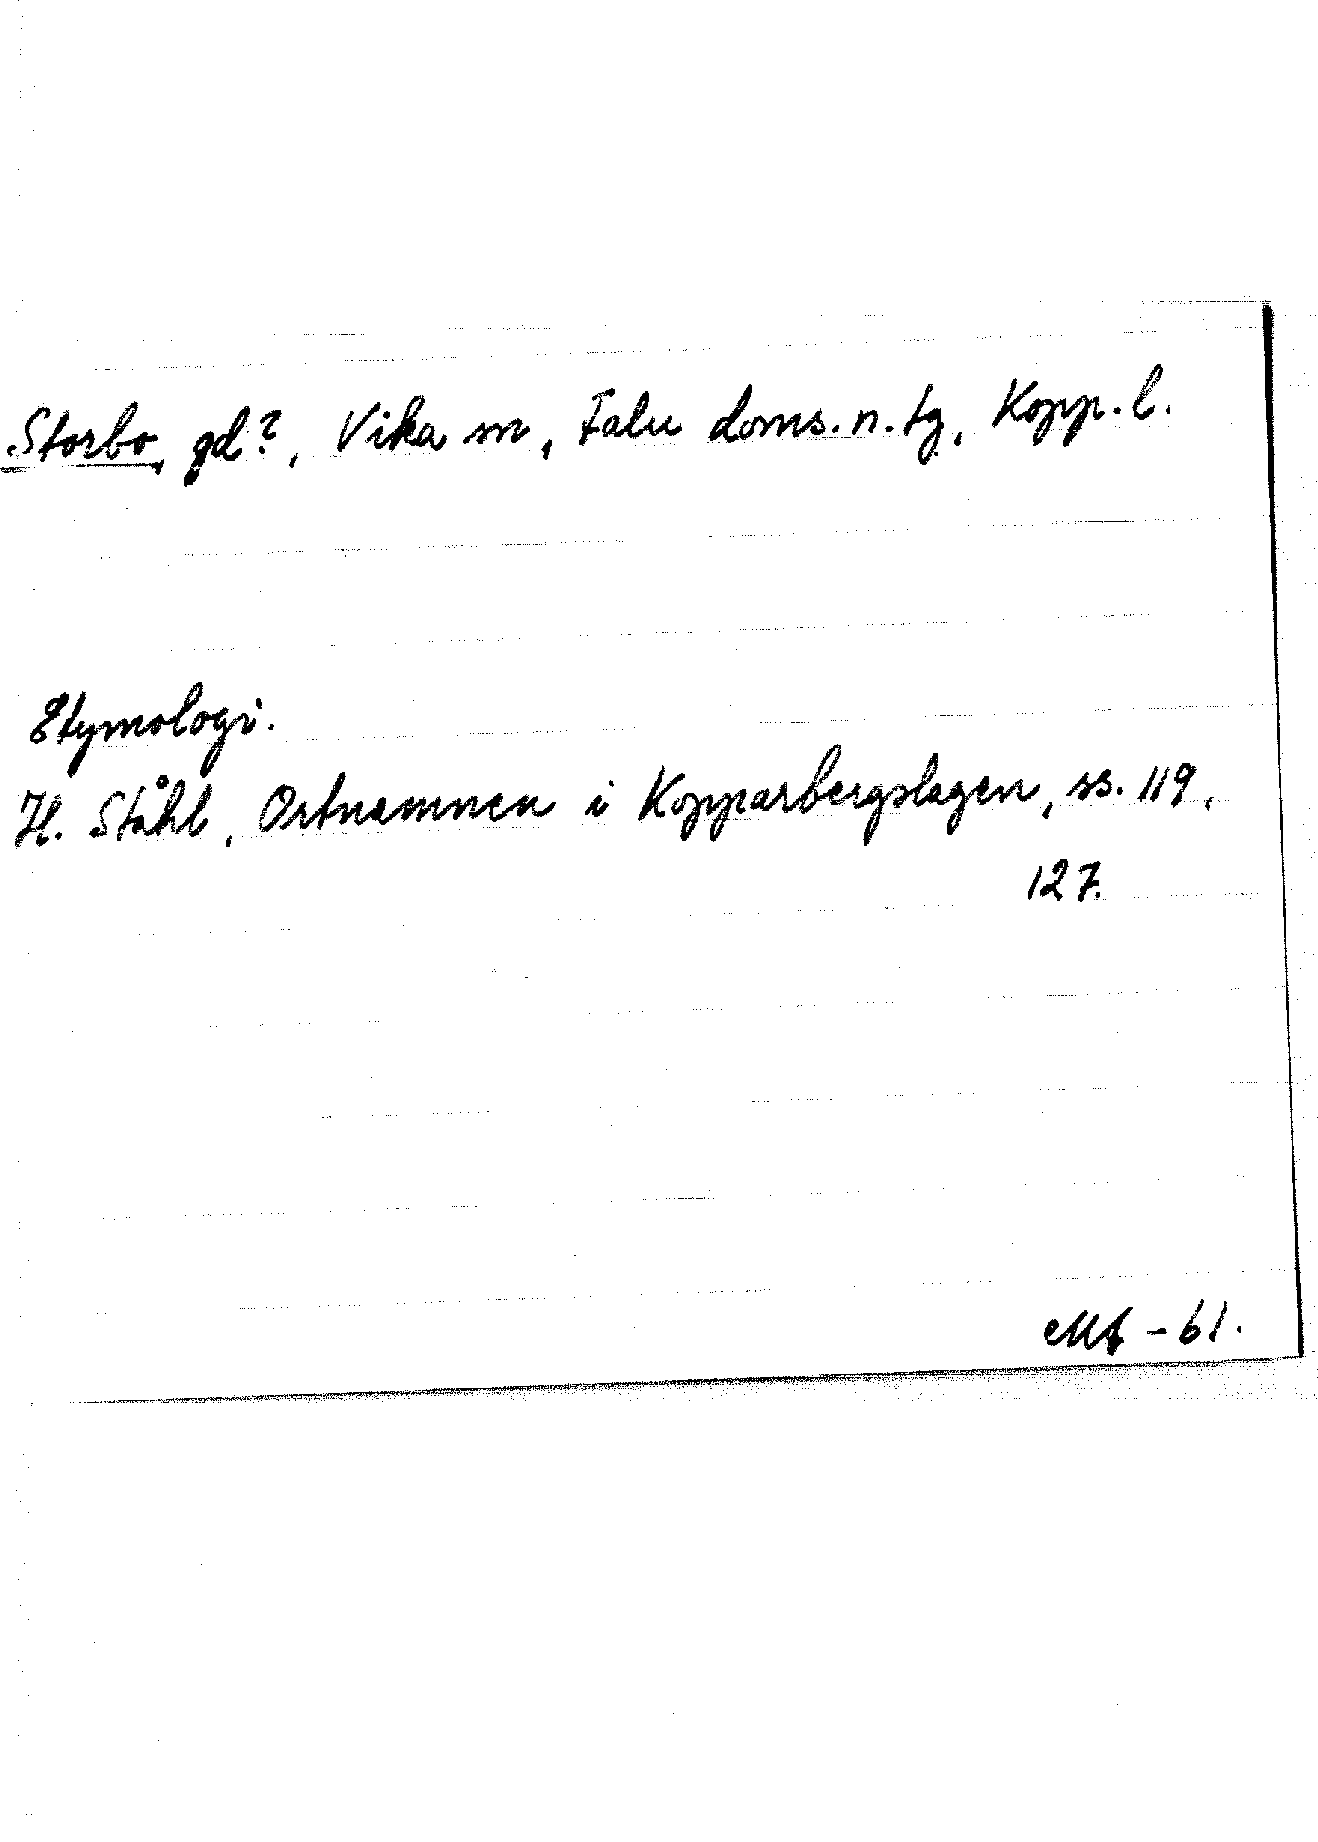 Storbo, gd?, Vika sn, Falu doms. n. tg, Kopp. l.
Etymologi.
H. Ståhl, Ortnamnen i Kopparbergslagen, ss. 119,
127.
- 61.